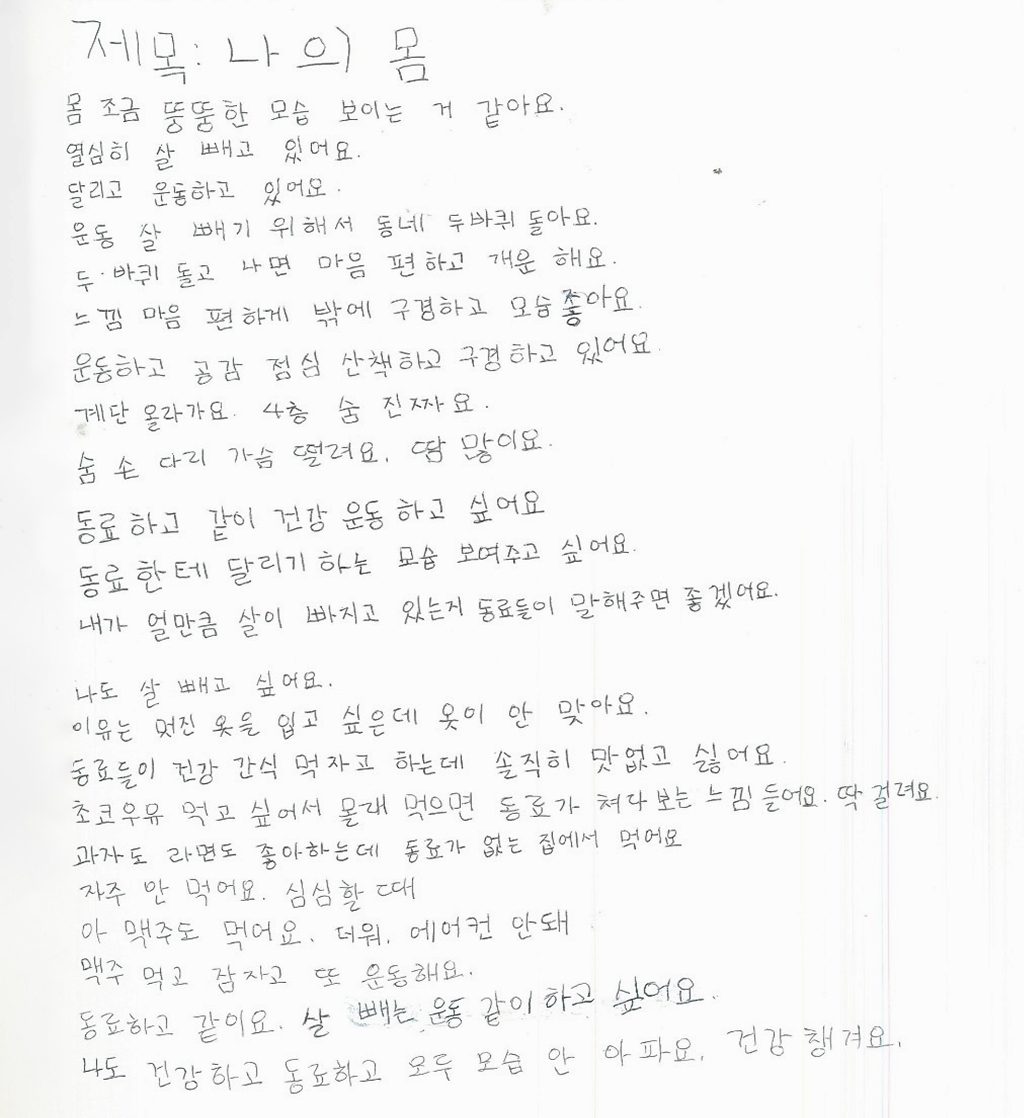 제목: 나의 몸
몸 조금 뚱뚱한 모습 보이는 거 같아요.
열심히 살 빼고 있어요.
달리고 운동하고 있어요.
운동 살 빼기 위해서 동네 두바퀴 돌아요.
두·바퀴 돌고 나면 마음 편하고 개운 해요.
느낌 마음 편하게 밖에 구경하고 모습 좋아요.
운동하고 공감 점심 산책하고 구경하고 있어요.
계단 올라가요. 4층 숨 진짜요.
숨 손 다리 가슴 떨려요. 땀 많이요.
동료하고 같이 건강 운동하고 싶어요
동료한테 달리기 하는 모습 보여주고 싶어요.
내가 얼만큼 살이 빠지고 있는거 동료들이 말해주면 좋겠어요.
나도 살 빼고 싶어요.
이유는 멋진 옷을 입고 싶은데 옷이 안 맞아요.
동료들이 건강 간식 먹자고 하는데 솔직히 맛없고 싫어요.
초코우유 먹고 싶어서 몰래 먹으면 동료가 쳐다 보는 느낌 들어요. 딱 걸려요.
과자도 라면도 좋아하는데 동료가 없는 집에서 먹어요
자주 안 먹어요. 심심할 때
아 맥주도 먹어요. 더워. 에어컨 안돼
맥주 먹고 잠자고 또 운동해요.
동료하고 같이요. 살 빼는 운동 같이하고 싶어요.
나도 건강하고 동료하고 모두 모습 안 아파요. 건강 챙겨요.